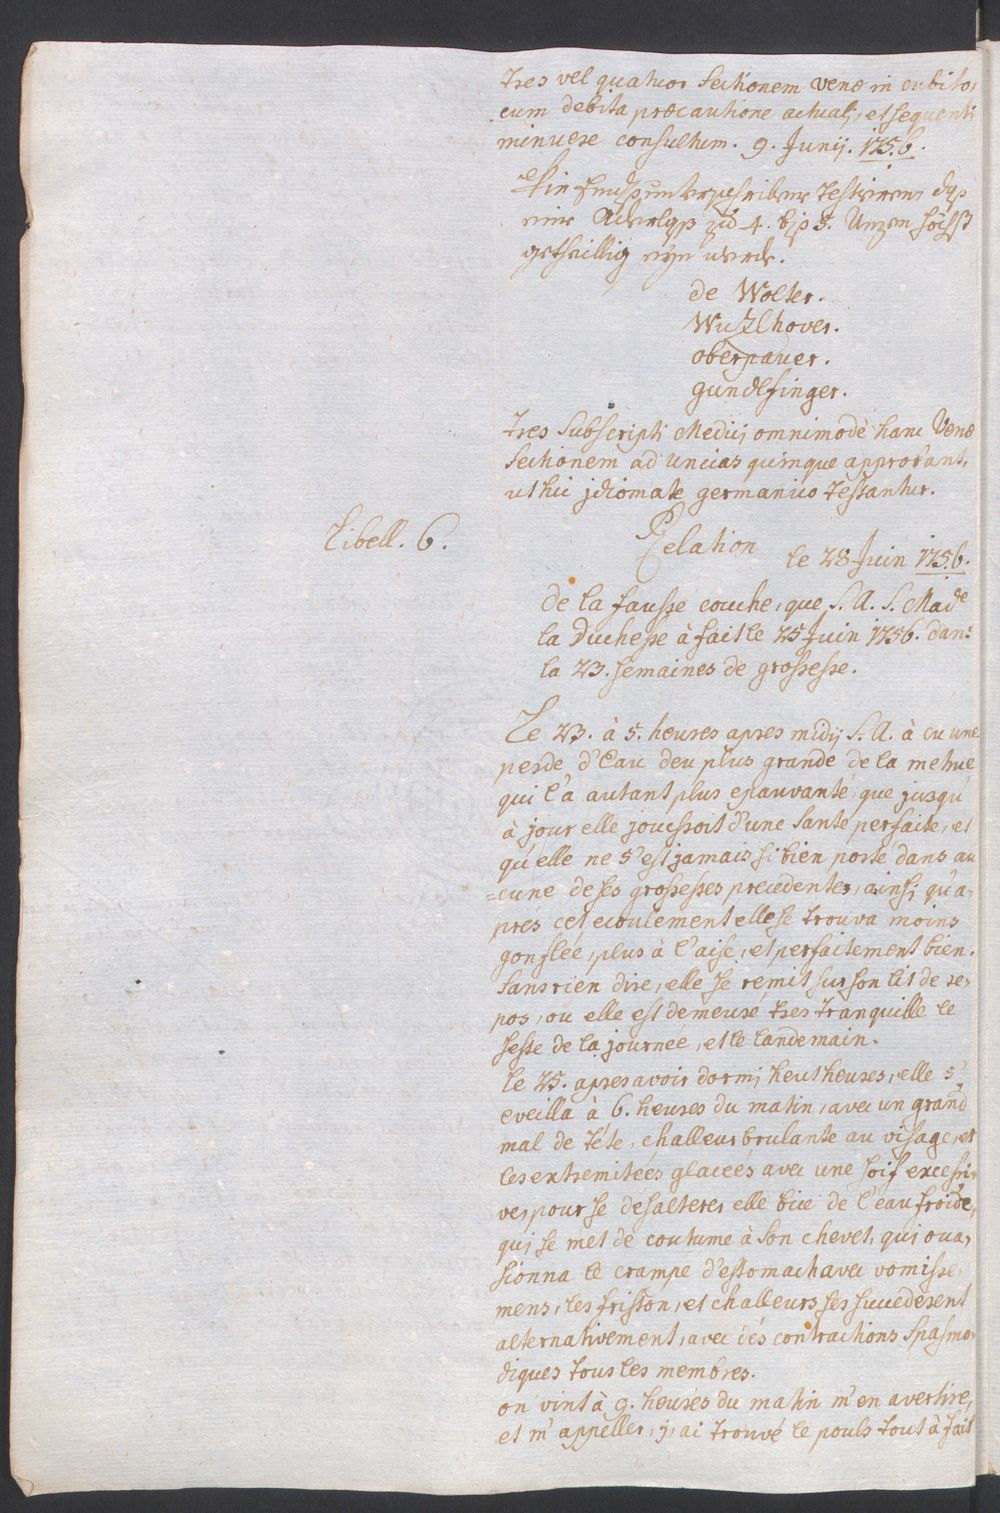 tres vel quatuor Sectionem venæ in cubito,
cum debita præcautione actuali, et sequenti
minuere consultum. 9. Junij. 1756.
Wir Endsunterschribene Testieren dass
eine Aderlass zu 4. bis 5. Unzen höchst
seyn werde.
de Wolter.
Wuzlhover.
oberpauer.
gundlfinger.
tres Subscripti Medici omnimodè hanc Venæ
Sectionem ad Uncias quinque approbant,
ut hic jdiomate germanico testantur.
Libell. 6.
Relation
le 28 Juin 1756.
de la fausse couche, que S. A. S. Made
la Duchesse à fait le 25 Juin 1756. dans
la 23. semaines de grossesse.
Le 23. à 5. heures apres midij S. A. à eu une
perde d'Eau deu plus grande de la metrue
qui l'a autant plus epauvanté, que jusqu'
à jour elle jouessoit d'une Santé perfaite, et
qu'elle ne s'est jamais si bien porté dans au
=cune de ses grossesses precedentes, ainsi qu'a,
prés cet ecoulement elle se trouva moins
gonflée, plus à l'aise, et perfaitement bien.
Sans rien dire, elle se remit sur son lit de re,
pos, ou elle est demeuré tres tranquille le
reste de la journée, et le landemain.
le 25. apres avoir dormi heut heures, elle s'
eveilla à 6. heures du matin, avec un grand
mal de téte, challeur brulante au visage, et
les extremiteés glaceés avec une soif excessi,
ve, pour se desalterer elle bue de l'eau froide,
qui se met de coutume à Son chevet, qui occa,
sionna le crampe d'estomach avec vomisse,
mens, les frisson, et challeurs ses succederent
alternativement, avec des contractions Spasmo,
diques tous les membres.
on vint à 9. heures du matin m'en avertire,
et m'appeller, j'ai trouvé le pouls tout à fait